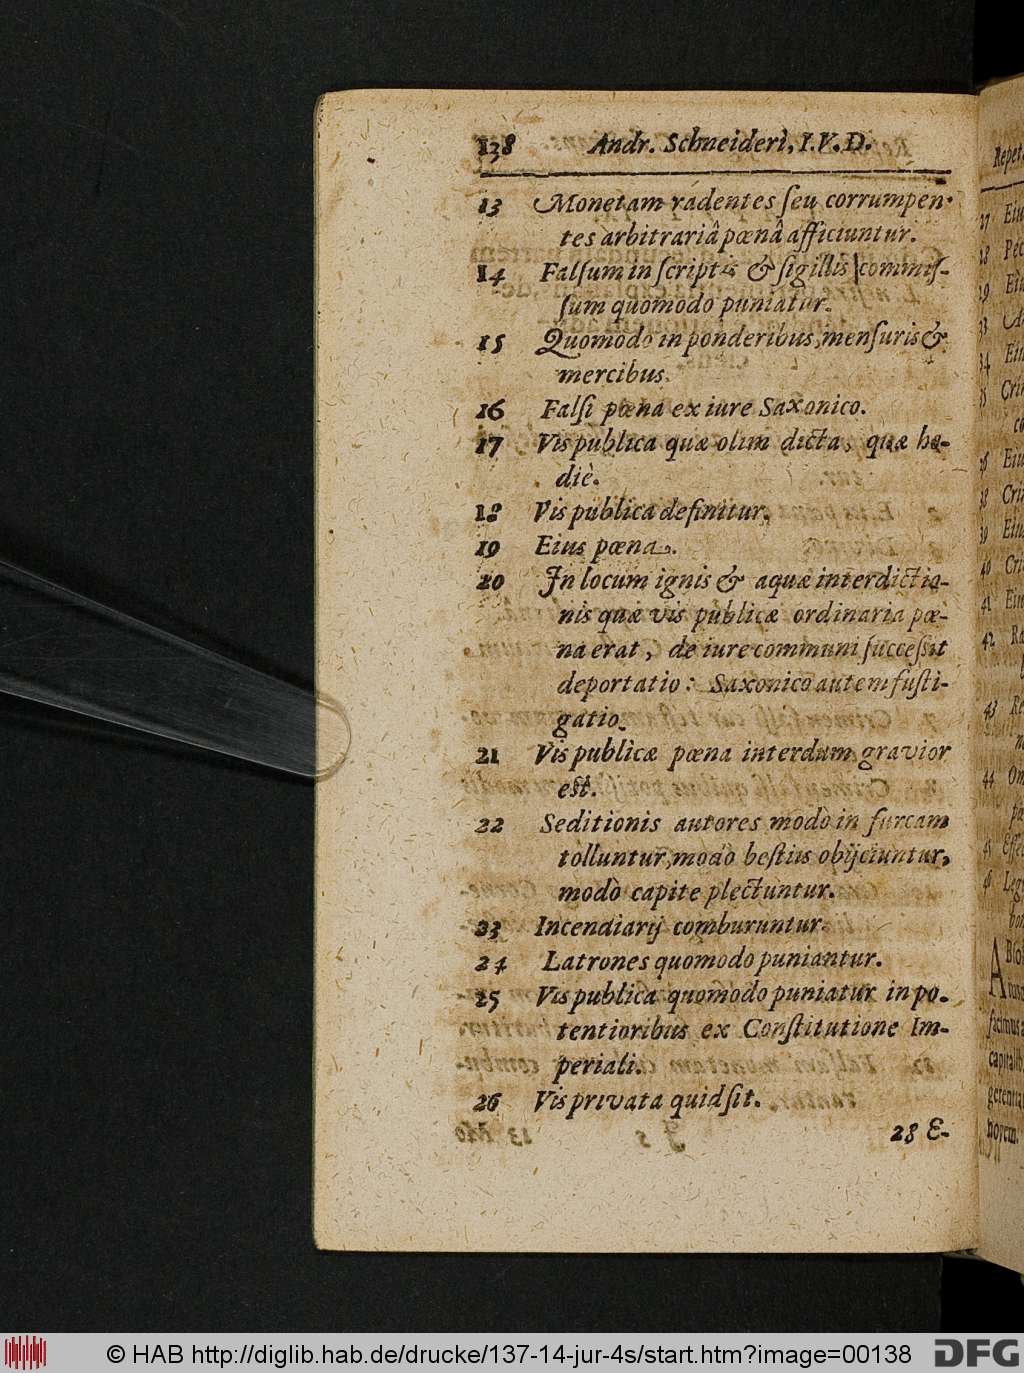 138 Andr. Schneideri, I.V.D.
13 Monetam radentes ſeu corrumpen-
tes arbitrariâ pœnâ afficiuntur.
14 Falſum in ſcriptis & ſigillis commiſ-
ſum quomodo puniatur.
15 Quomodo in ponderibus, menſuris &
mercibus.
16 Falſi pœna ex iure Saxonico.
17 Vis publica quæ olim dicta, quæ ho-
diè.
18 Vis publica definitur.
19 Eius pœna.
20 In locum ignis & aquæ interdictio-
nis quæ vis publicæ ordinaria pœ-
na erat, de iure communi ſucceſsit
deportatio: Saxonico autem fuſti-
gatio.
21 Vis publicæ pœna interdum gravior
est.
22 Seditionis autores modò in furcam
tolluntur, modò beſtiis obijciuntur,
modò capite plectuntur.
23 Incendiarij comburuntur.
24 Latrones quomodo puniantur.
25 Vis publica quomodo puniatur in po-
tentioribus ex Conſtitutione Im-
periali.
26 Vis privata quid ſit.
28 E-
Repet.
27 Eiu
28 Pœ
29 Eiu
33
34 Eiu
35 Cri
co
36 Eiu
38 Cri
39 Eiu
40 Cri
41 Eiu
42 Ra
43 Re
44 On
pa
45 Eſſe
46 Leg
bon
facimus
capitalib
gerentia
horem.
© HAB http://diglib.hab.de/drucke/137-14-jur-4s/start.htm?image=00138
DFG